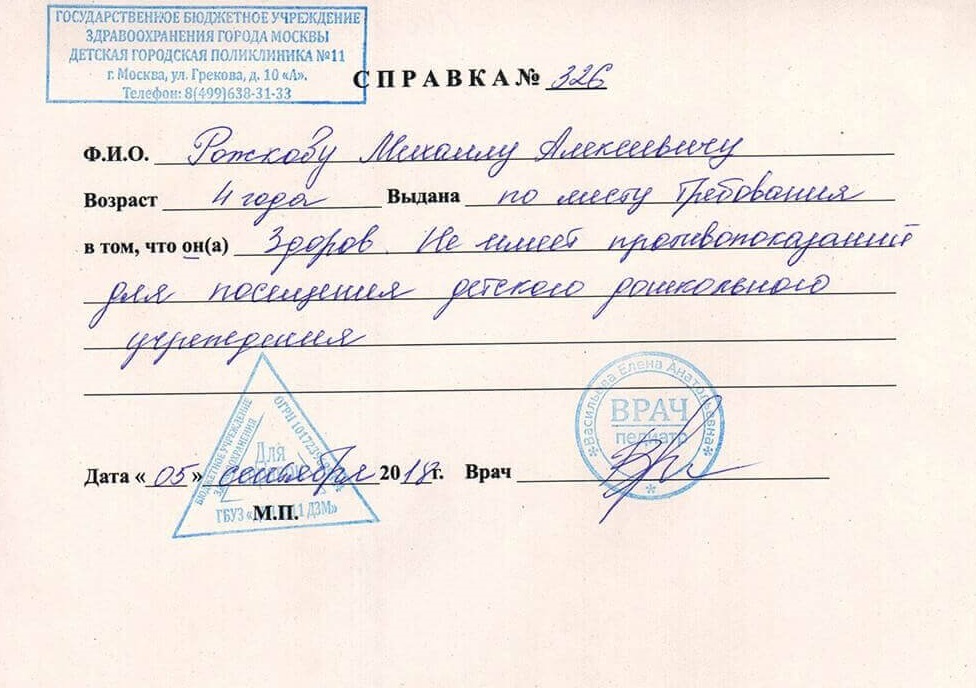 ГОСУДАРСТВЕННОЕ БЮДЖЕТНОЕ УЧРЕЖДЕНИЕ
ЗДРАВООХРАНЕНИЯ ГОРОДА МОСКВЫ
ДЕТСКАЯ ГОРОДСКАЯ ПОЛИКЛИНИКА №11
г. Москва, ул. Грекова, д. 10 «А».
Телефон: 8(499)638-31-33
СПРАВКА № 326
Ф.И.О. Рожкову Михаилу Алексеевичу
Возраст 4 года Выдана по месту Требования
в том, что он(а) Здоров. Не имеет противопоказаний
для посещения детского дошкольного
учреждения
БЮДЖЕТНОЕ УЧРЕЖДЕНИЕ
ОГРН
Для
Елена Анатольевна
ВРАЧ
педиатр
Дата «05» сентября 2018г. Врач
ГБУЗ ДЗМ»
М.П.